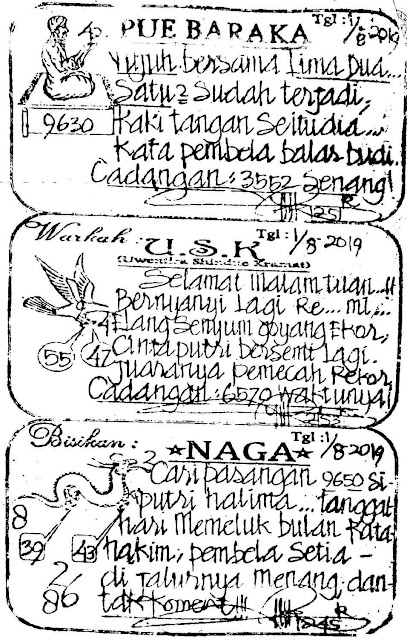 PUE BARAKA
Tgl : 1/8-2019
9630
Tujuh bersama Lima Dua...
Satu2 Sudah terjadi,
Kaki tangan Semudia...
Kata pembela balas budi.
Cadangan : 3552 Senang!
Warkah :
U.S.K
Tgl : 1/8-2019
Selamat malam tuan..!!
Bernyanyi lagi Re... mi...
Elang Senyum goyang Ekor,
55
47
Cinta putri bersemi lagi.
Juaranya pemecah Rekor,
Cadangan : 6570 Waktunya!
Bisikan :
NAGA
Tgl : 1/8-2019
Cari pasangan 9650 Si
putri halima... tanggal
8
hari Memeluk bulan Kata
39
43
hakim, pembela Setia -
2
di Taburnya Menang, dan
86
tak Koment!!!
245